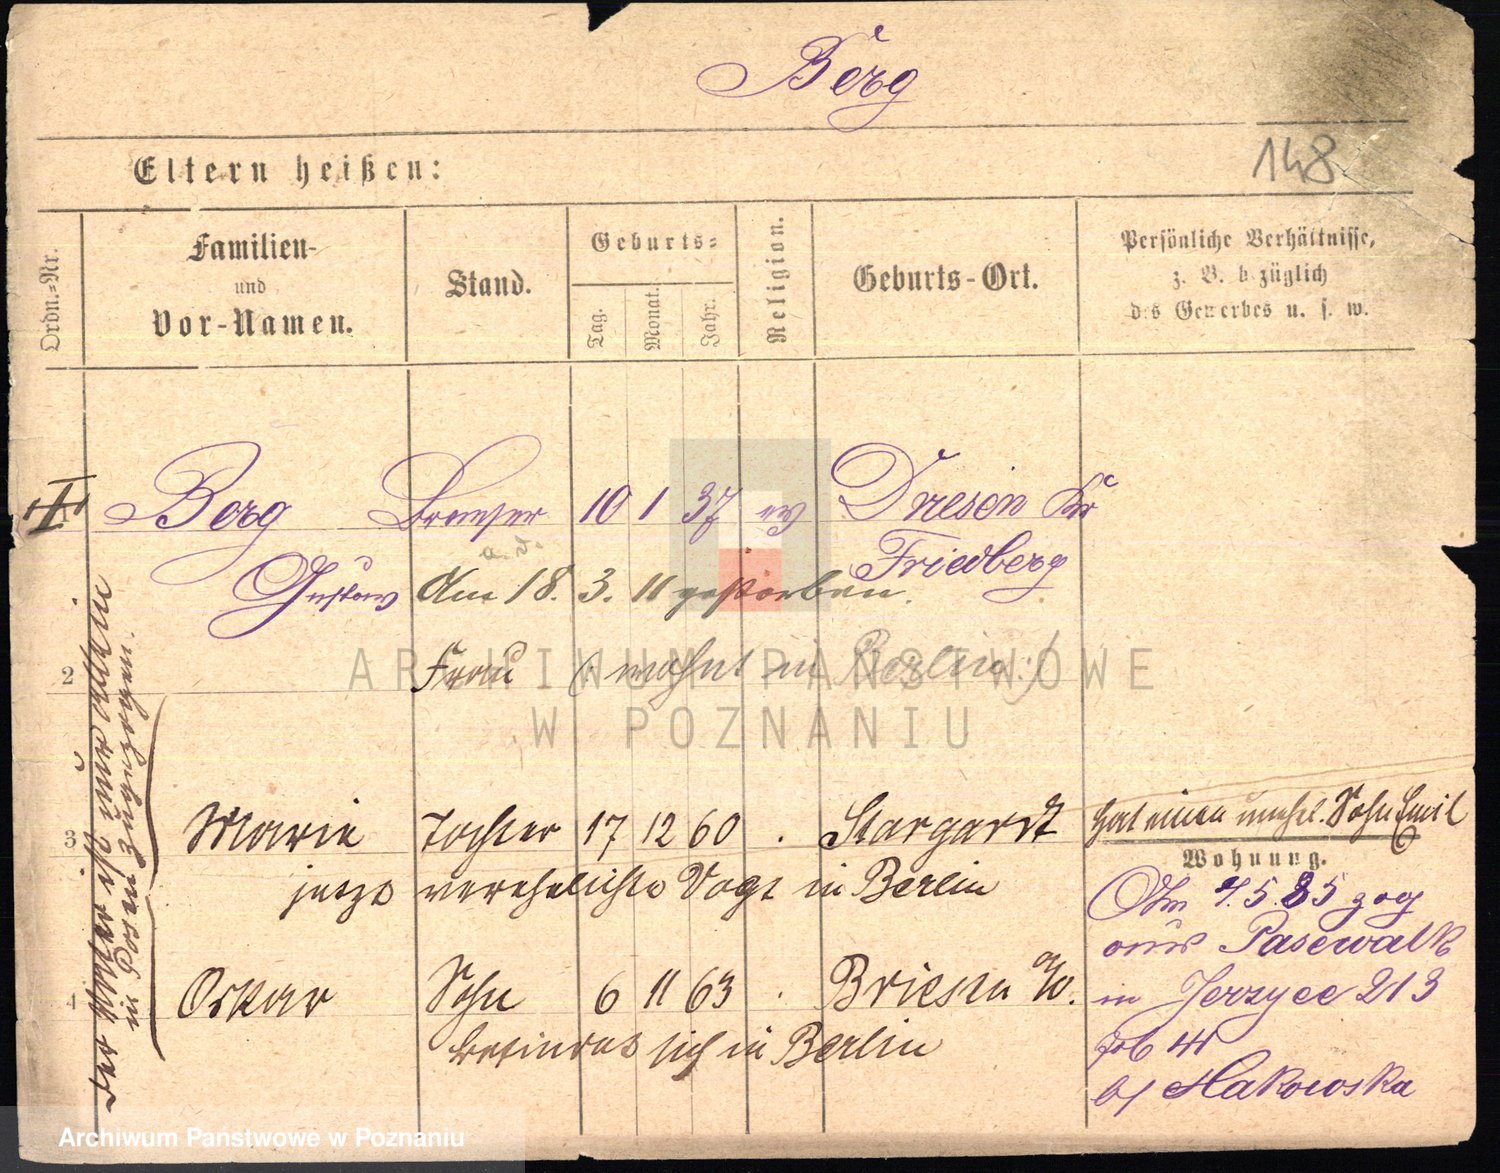 Berg
148
Eltern heißen:
Ordn.-Nr.
Familien-
und
Vor-Namen.
Stand.
Geburts-
Tag.
Monat.
Jahr.
Religion.
Geburts-Ort.
Persönliche Verhältnisse,
z. B. bezüglich
des Gewerbes u. s. w.
Berg 10 1 37 ev Driesen Kr
Gustav Friedberg
Am 18. 3. 11 gestorben.
2 Frau (: wohnt in Berlin :)
3 Marie Tochter 17 12 60 . Stargardt hat einen unehel. Sohn Emil
jetzt verehelichte Vogt in Berlin
4 Oskar Sohn 6 11 63 . Briesen
befindet sich in Berlin
Der Vater ist nur allein
in Posen zugezogen.
Wohnung.
7.5.85 zog
aus Pasewalk
in Jerzyce 213
b/ Makowska
ARCHIWUM PAŃSTWOWE
W POZNANIU
Archiwum Państwowe w Poznaniu